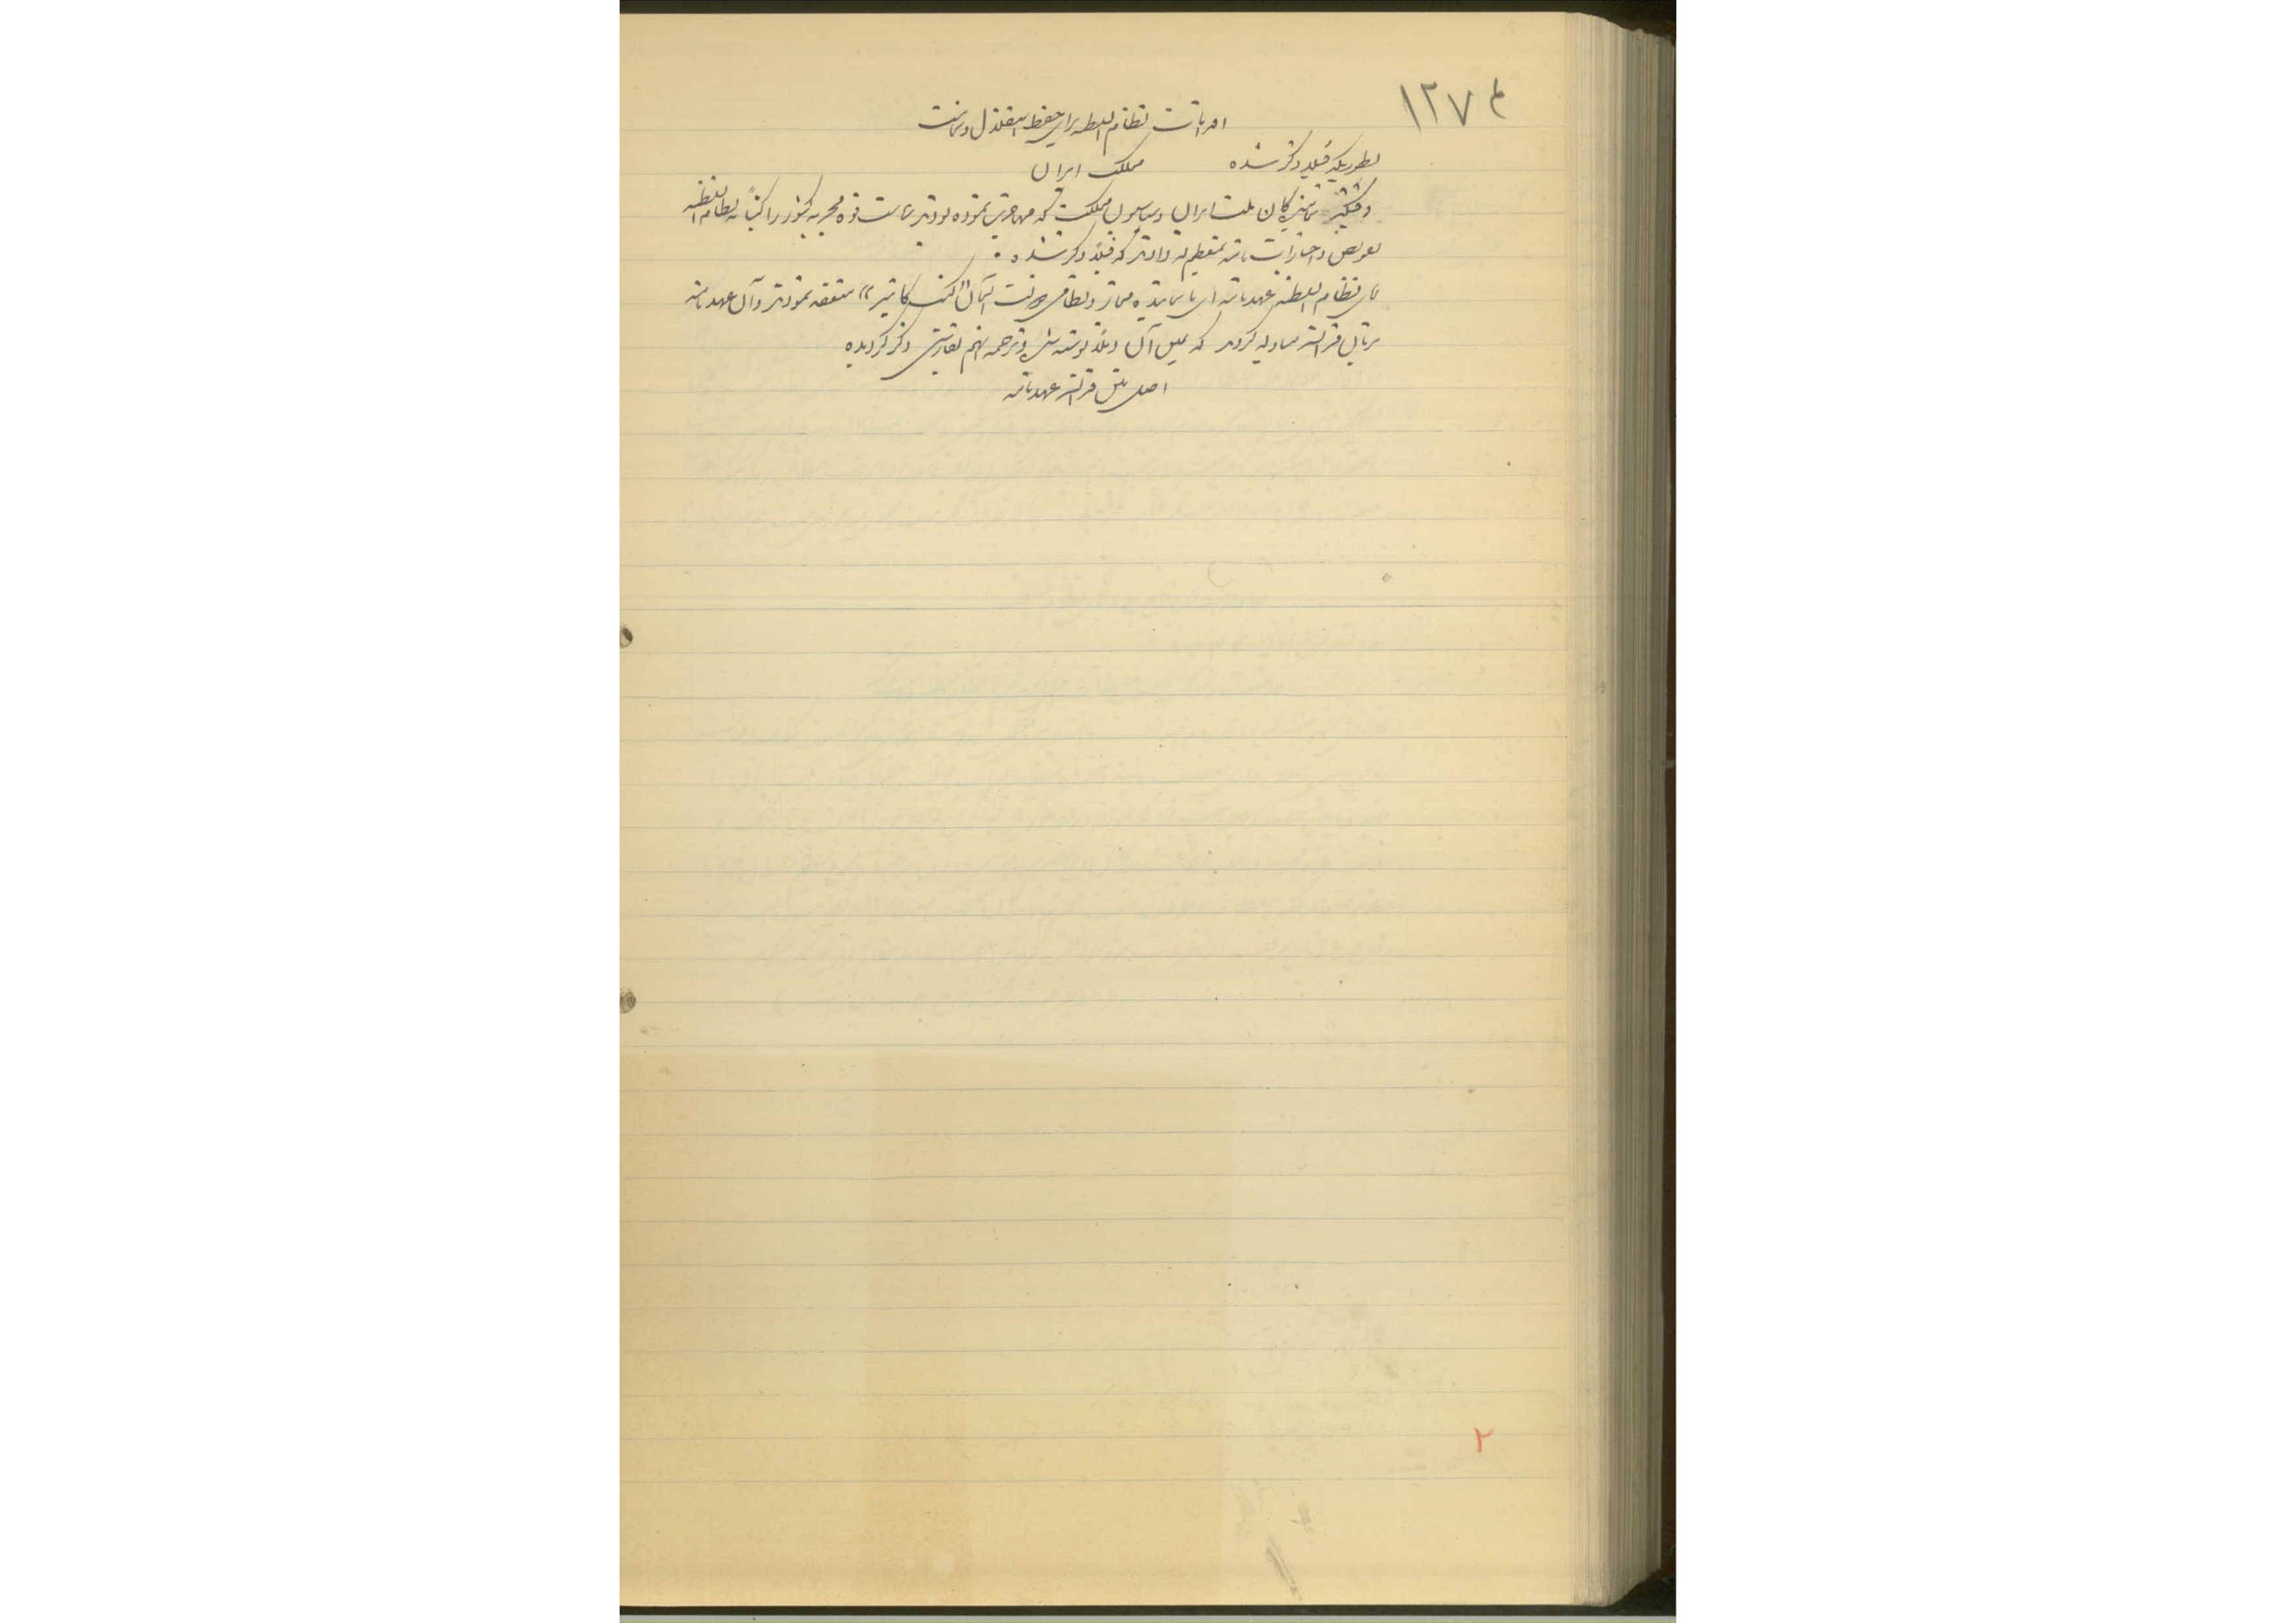 ۱۲۷۴
اقدامات نظام السلطنه برای حفظ استقلال و تمامیت
مملکت ایران
بطوریکه قبلا ذکر شده
وقتیکه نمایندگان ملت ایران و سیاسیون مملکت که مهاجرت نموده بودند ریاست قوه مجریه کشور را کتباً به نظام السلطنه
تفویض و اجازات نامه بمعظم له دادند که قبلا ذکر شده .
نظام السلطنه عهدنامه ای با نماینده مختار و نظامی دولت آلمان "کنت کانیتز" منعقد نمودند و آن عهدنامه
بزبان فرانسه مبادله گردید که عین آن ذیلا نوشته شده و ترجمه آنهم بفارسی ذکر گردیده
اصل متن فرانسه عهدنامه
۲